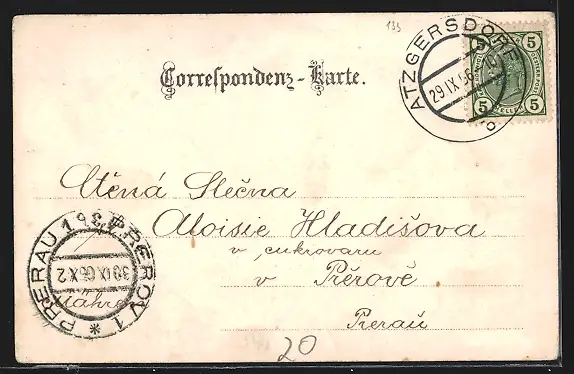 133
ATZGERSDORF
29 IX 06
5 5
5 5
HELLER
Correspondenz-Karte.
Ctěná Slečna
Aloisie Hladišova
v cukrovaru
v Přérově
Mähren
Prerau
PRERAU 1 PŘEROV 1 *
30 IX 06 X 2
20